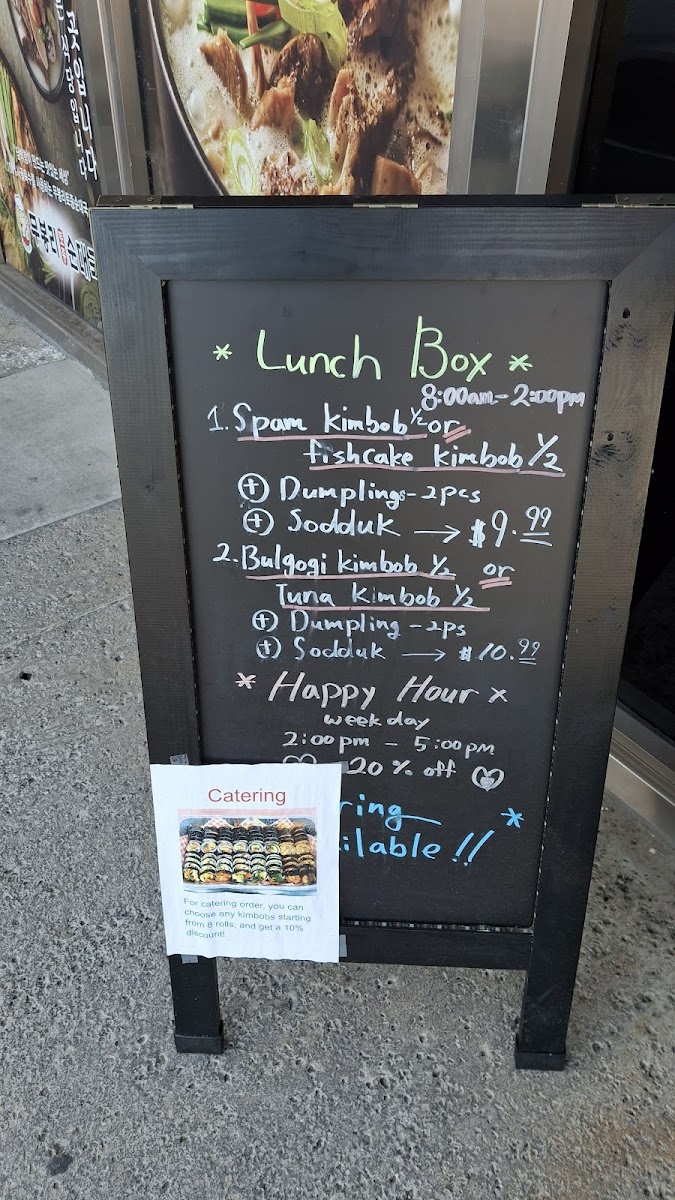 무봉리 순대국
* Lunch Box *
8:00am - 2:00pm
1. Spam kimbob 1/2 or
fishcake kimbob 1/2
⊕ Dumplings - 2pcs
⊕ Sodduk → $9.99
2. Bulgogi kimbob 1/2 or
Tuna Kimbob 1/2
⊕ Dumpling - 2ps
⊕ Sodduk → $10.99
* Happy Hour x
weekday
2:00pm - 5:00pm
♡ 20% off ♡
ring *
ilable!!
Catering
For catering order, you can
choose any kimbobs starting
from 8 rolls, and get a 10%
discount!